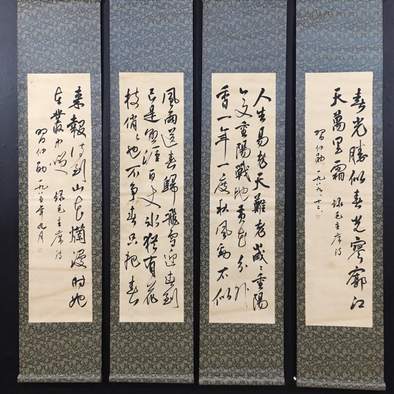 人生易老天難老歲〻重陽
今又重陽戰地黃花分外
香一年一度秋風勁不似
春光勝似春光寥廓江
天萬里霜 錄毛主席詩
習仲勛 一九八九
風雨送春歸飛雪迎春到
已是懸崖百丈冰猶有花
枝俏〻也不爭春只把春
來報待到山花爛漫時她
在叢中笑 錄毛主席詩
習仲勛 一九八五年九月